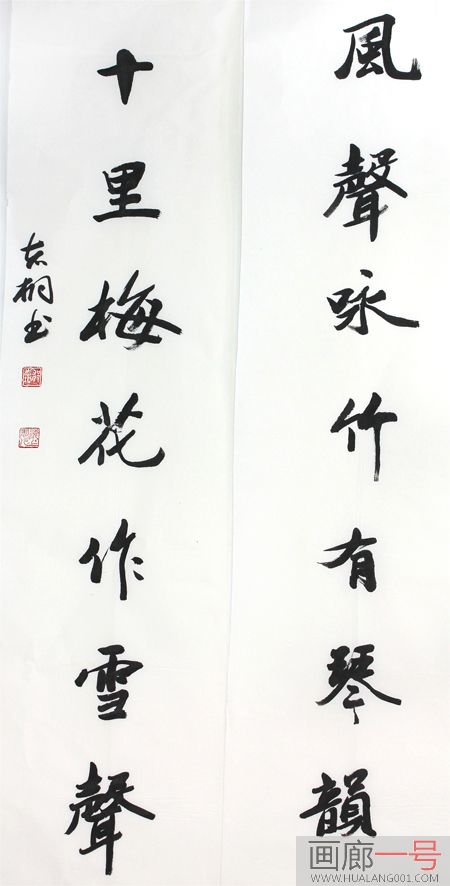 風聲咏竹有琴韻
十里梅花作雪聲
画廊一号
WWW.HUALANG001.COM